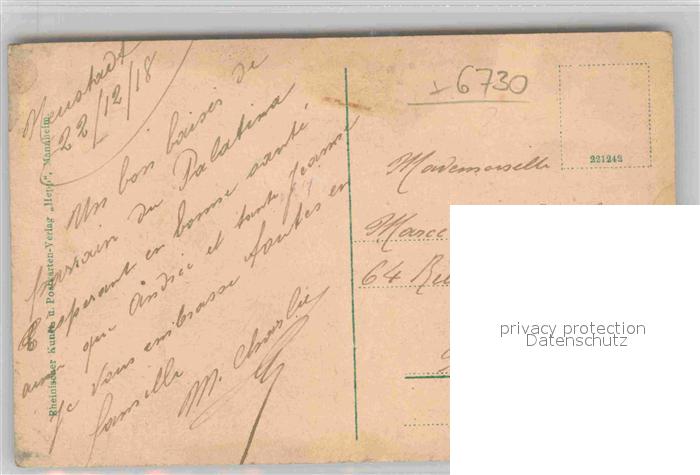 Neustadt
22/12/18
Un bon baiser de
parrain du Palatina
T'esperant en bonne santé
ainsi que Andrée et tante Jeanne
Je vous embrasse toutes en
famille
M. Charlie
Rheinischer Kunst- u. Postkarten-Verlag „Hepp“, Mannheim.
6730
221242
Mademoiselle
Marce
64 Rue
privacy protection
Datenschutz